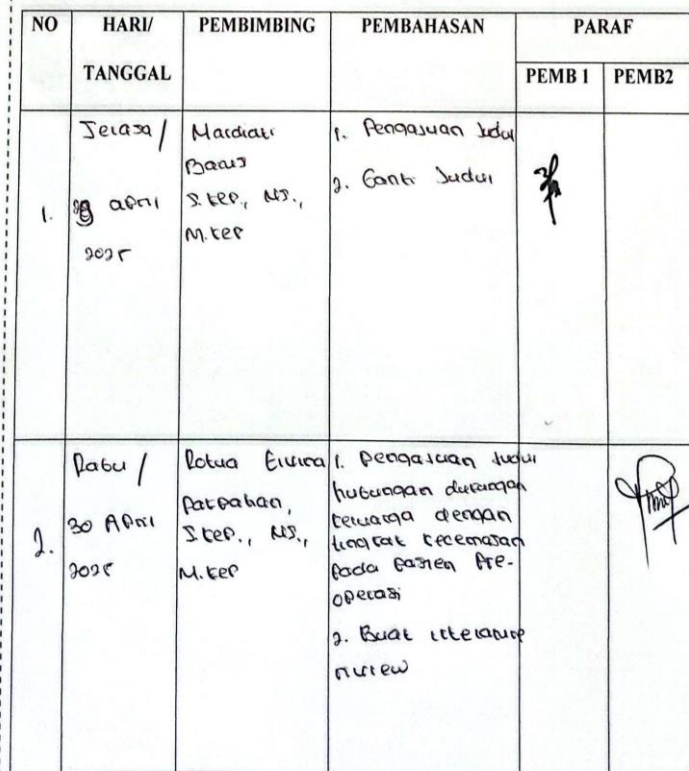 NO HARI/ TANGGAL PEMBIMBING PEMBAHASAN PARAF
PEMB 1 PEMB2
1.
Selasa /
29 April
2025
Mardiati
Barus
S.Kep., NS.,
M.Kep
1. Pengajuan Judul
2. Ganti Judul
2.
Rabu /
30 April
2025
Rotua Elvina
Pakpahan,
S.Kep., NS.,
M.Kep
1. Pengajuan Judul
hubungan dukungan
keluarga dengan
tingkat kecemasan
pada pasien Pre-
operasi
2. Buat literature
review